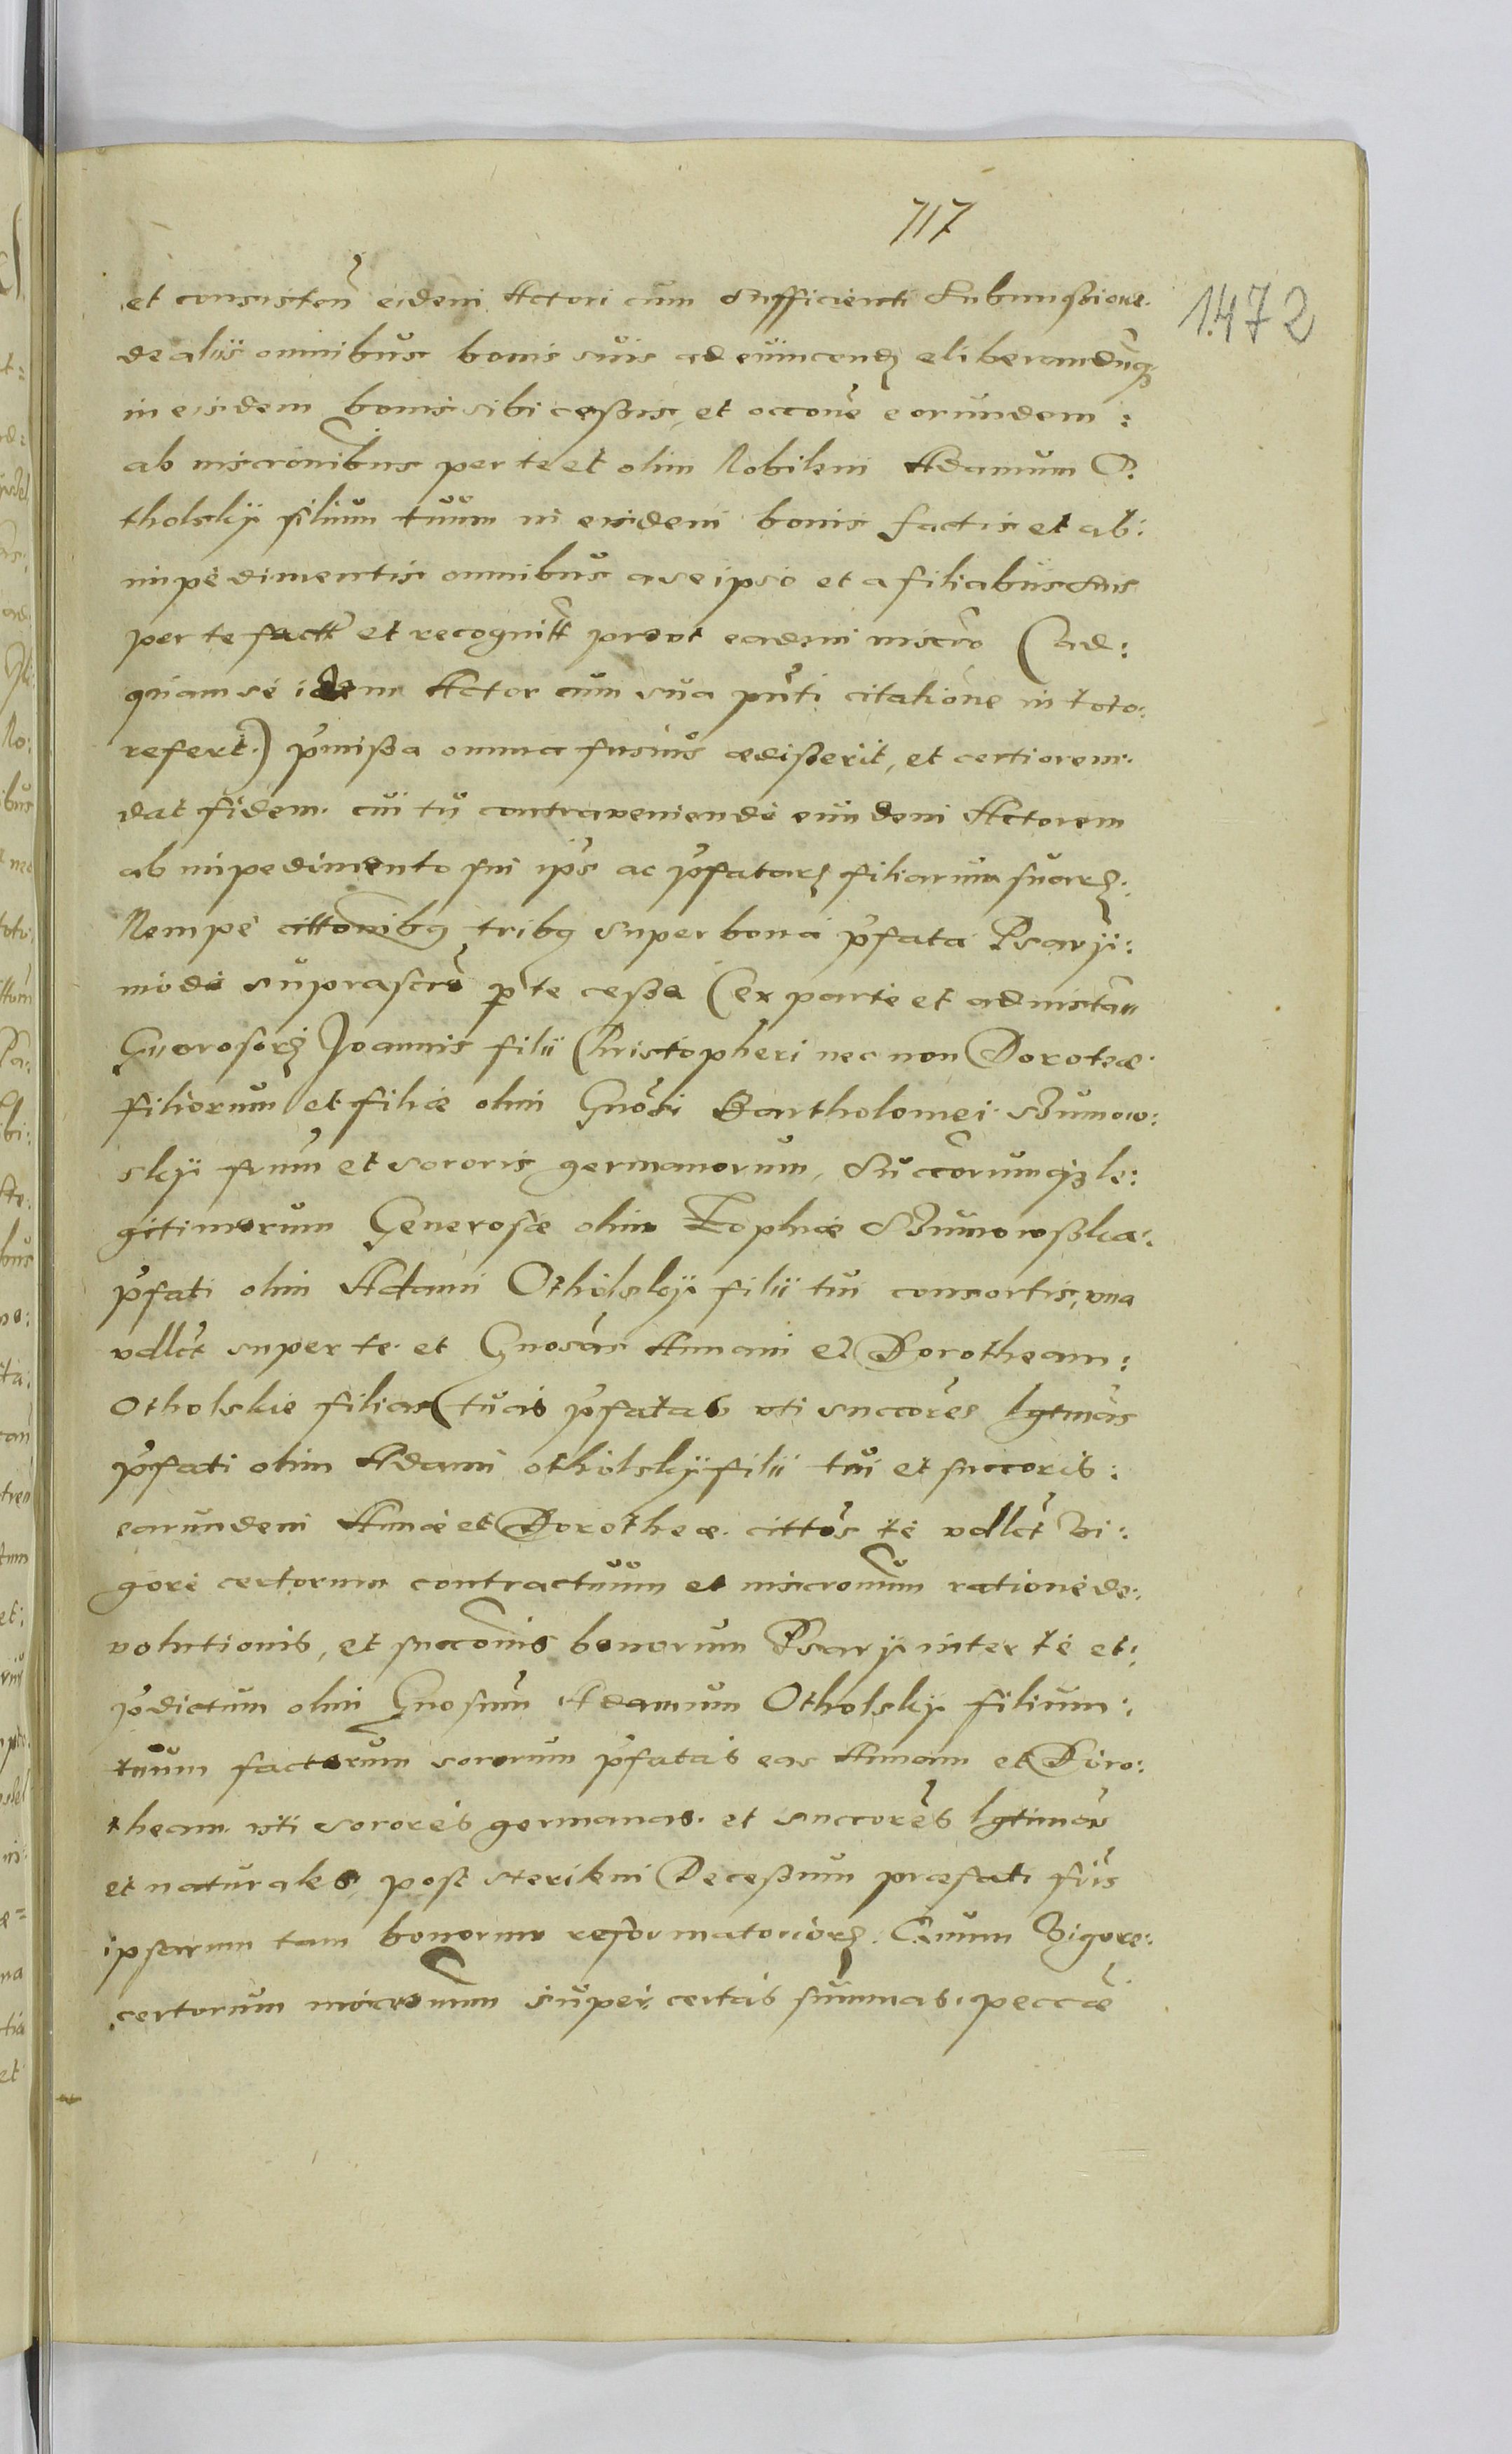 717
1472
et consisteñ eidem Actori cum sufficienti submissione
de aliis omnibus bonis suis ad evincend eliberandūq
in eisdem bonis sibi cessis, et occone eorundem:
ab inscronibus per te et olim Nobilem Adamum O
tholsky filium tuum in eisdem bonis factis et ab:
impedimentis omnibus a se ipso et a filiabus suis
per te factt et recognitt prout eadem inscro (ad:
quam se idem Actor cum sua pnti citatione in toto:
refert) pmissa omnia fusius edisserit, et certiorem
dat fidem. cui tu contraveniendo eundem Actorem
ab impedimento sui ips ac pfatar filiarum suar:
Nempe cittonibq tribq super bona pfata Psary:
modo suprascro p te cessa (ex parte et ad instan
Gnerosor Joannis filii Christopheri nec non Doroteæ
filiorum et filiæ olim Gnosi Bartholomei Bumow:
sky frum et sororis germanorum, succorumq le:
gitimorum Generosæ olim Zophiæ Bumowsska:
pfati olim Adami Otholsky filii tui consortis, una
vdlct super te et Gnosas Annam et Dorotheam:
Otholskie filias tuas pfatas uti succores lgtmas
pfati olim Adami otholsky filii tui et succoris:
earundem Annæ et Dorotheæ cittos te vdlct Vi:
gore certorum contractuum et inscronum ratione de:
volutionis, et succonis bonorum Psary inter te et:
pdictum olim Gnosum Adamum Otholsky filium:
tuum factorum sororum pfatas eas Annam et Doro:
theam uti sorores germanas et succores lgtimas
et naturales, post sterilem Decessum præfati fris
ipsarum tam bonorum reformatorior. Quum Vigore:
certorum inscronum super certas summas peccæ